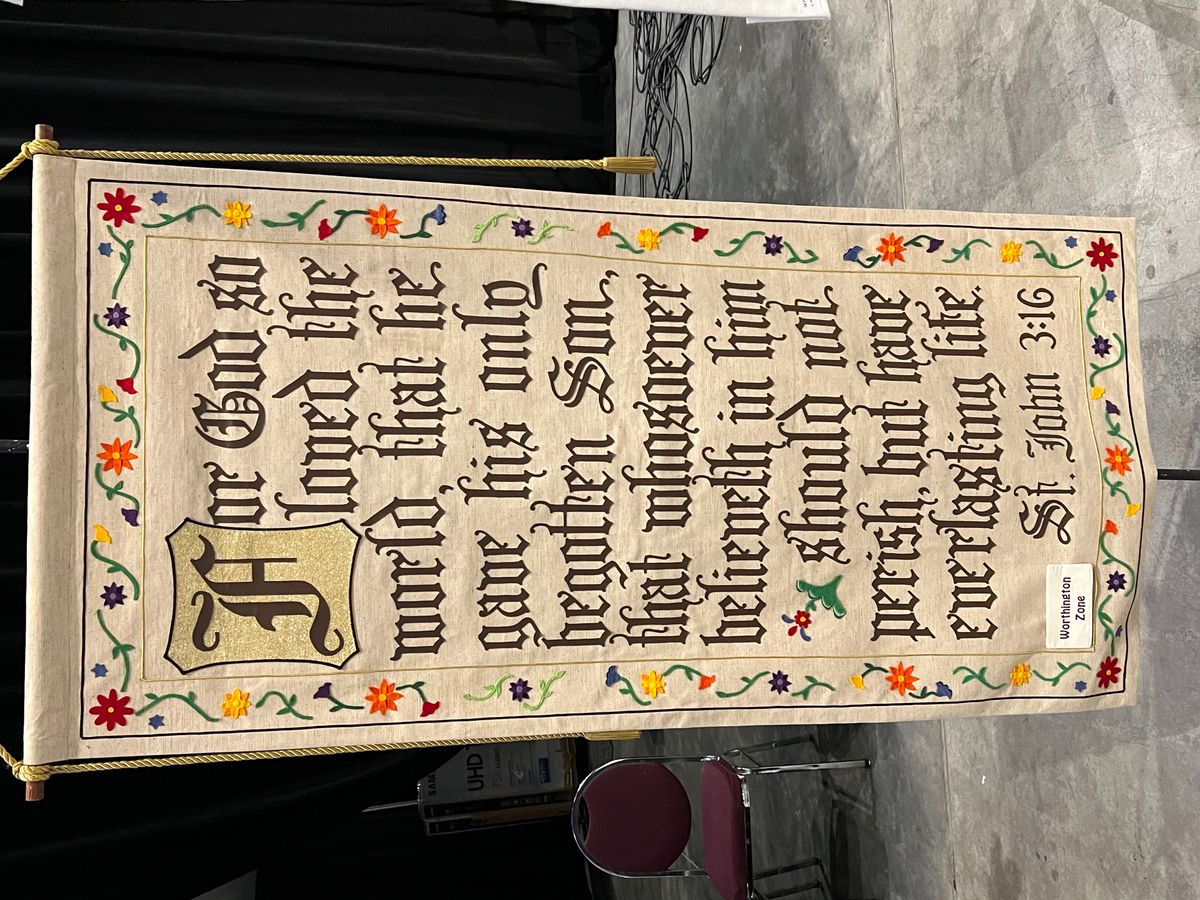 For God so
loved the
world, that he
gave his only
begotten Son,
that whosoever
believeth in him
should not
perish, but have
everlasting life.
St. John 3:16
Worthington
Zone
SAM
UHD
75